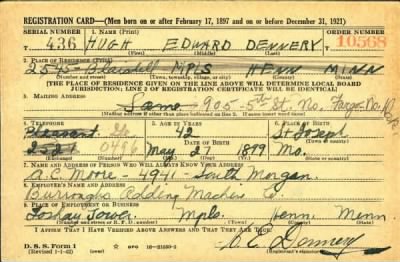 REGISTRATION CARD—(Men born on or after February 17, 1897 and on or before December 31, 1921)
SERIAL NUMBER 1. NAME (Print) ORDER NUMBER
436 HUGH EDWARD DENNERY 10568
(First) (Middle) (Last)
2. PLACE OF RESIDENCE (Print)
2545 Blaisdell MPLS HENN MINN
(Number and street) (Town, township, village, or city) (County) (State)
[THE PLACE OF RESIDENCE GIVEN ON THE LINE ABOVE WILL DETERMINE LOCAL BOARD
JURISDICTION; LINE 2 OF REGISTRATION CERTIFICATE WILL BE IDENTICAL]
3. MAILING ADDRESS
Same 905-5th St. No. Fargo No. Dak.
(Mailing address if other than place indicated on line 2. If same insert word same)
4. TELEPHONE 5. AGE IN YEARS 6. PLACE OF BIRTH
Pleasant 42 St Joseph
DATE OF BIRTH
0496 May 27 1899 Mo.
7. NAME AND ADDRESS OF PERSON WHO WILL ALWAYS KNOW YOUR ADDRESS
A.C. Moore - 4941 - South Morgan
8. EMPLOYER'S NAME AND ADDRESS
Burroughs Adding Machine Co.
9. PLACE OF EMPLOYMENT OR BUSINESS
Foshay Tower Mpls. Henn. Minn.
(Number and street or R. F. D. number) (Town) (County) (State)
I AFFIRM THAT I HAVE VERIFIED ABOVE ANSWERS AND THAT THEY ARE TRUE.
D. S. S. Form 1
(Revised 1-1-42) (over) Dennery